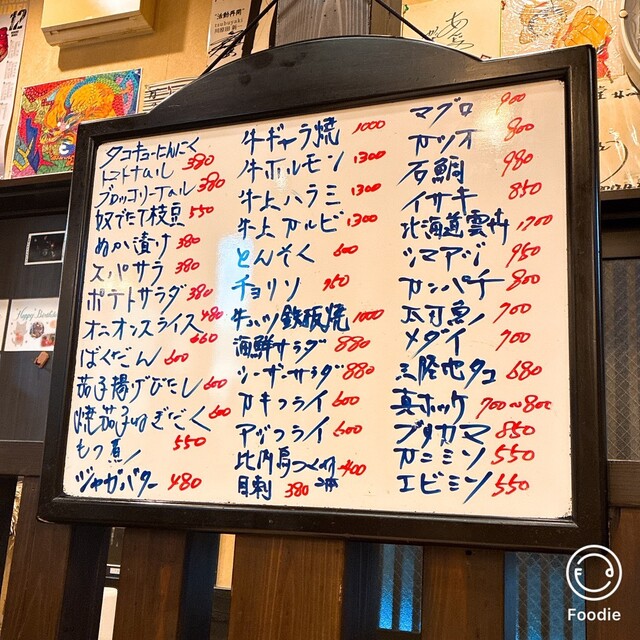 タコキューにんにく
トマトナムル 380
ブロッコリーナムル 380
奴 ゆでたて枝豆 550
ぬか漬け 380
スパサラ 380
ポテトサラダ 380
オニオンスライス 480
ばくだん 600
660
茄子揚げびたし 600
焼茄子ねぎだく 600
もつ煮 550
ジャガバター 480
牛ギャラ焼 1000
牛ホルモン 1300
牛上ハラミ 1300
牛上カルビ 1300
とんそく 600
チョリソ 950
牛ハツ鉄板焼 1000
海鮮サラダ 880
シーザーサラダ 880
カキフライ 600
アジフライ 600
比内鳥つくね 400
目刺 380
マグロ 900
カツオ 800
石鯛 980
イサキ 850
北海道雲丹 1700
シマアジ 950
カンパチ 800
太刀魚 700
メダイ 700
三陸地タコ 680
真ホッケ 700〜800
ブリカマ 850
カニミソ 550
エビミソ 550
12
"活動再開"
tsubuyaki
Happy Birthday
Foodie